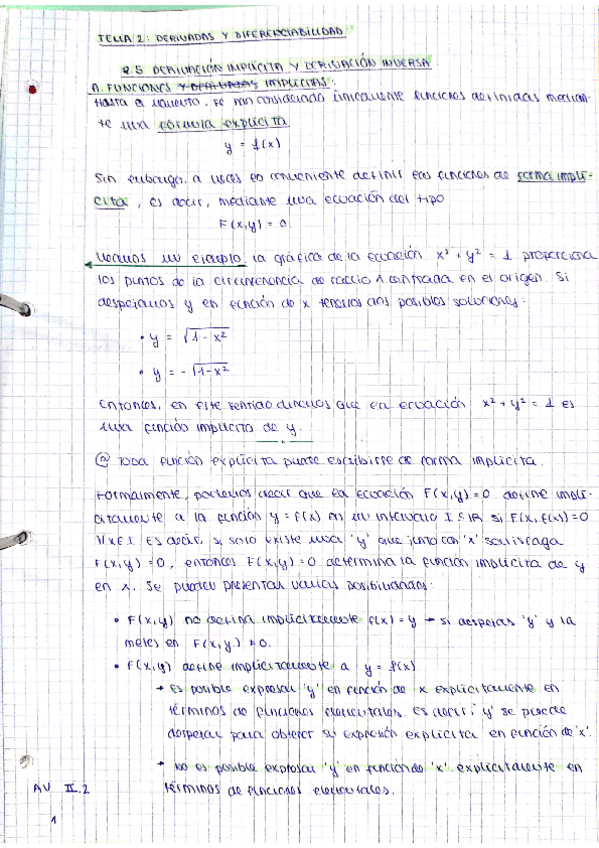 TEMA 2: DERIVADAS Y DIFERENCIABILIDAD
2.5 DERIVACIÓN IMPLÍCITA Y DERIVACIÓN INVERSA
A. FUNCIONES Y DERIVADAS IMPLÍCITAS:
Hasta el momento, se han considerado únicamente funciones definidas median-
te una fórmula explícita
y = f(x)
Sin embargo, a veces es conveniente definir las funciones de forma implí-
cita, es decir, mediante una ecuación del tipo
F(x,y) = 0.
Veamos un ejemplo: la gráfica de la ecuación x² + y² = 1 proporciona
los puntos de la circunferencia de radio 1 centrada en el origen. Si
despejamos y en función de x tenemos dos posibles soluciones:
• y = √1-x²
• y = -√1-x²
Entonces, en este sentido diremos que la ecuación x² + y² = 1 es
una función implícita de y.
@ Toda función explícita puede escribirse de forma implícita.
Formalmente, podemos decir que la ecuación F(x,y)=0 define implí-
citamente a la función y = f(x) en un intervalo I ⊆ ℝ si F(x, f(x))=0
∀x∈I. Es decir, si solo existe una 'y' que junto con 'x' satisfaga
F(x,y)=0, entonces F(x,y)=0 determina la función implícita de y
en x. Se pueden presentar varias posibilidades:
• F(x,y) no defina implícitamente f(x)=y → si despejas 'y' y la
metes en F(x,y) ≠ 0.
• F(x,y) define implícitamente a y = f(x)
→ Es posible expresar 'y' en función de x explícitamente en
términos de funciones elementales. Es decir, 'y' se puede
despejar para obtener su expresión explícita en función de 'x'.
→ No es posible expresar 'y' en función de 'x' explícitamente en
términos de funciones elementales.
AV II.2
1